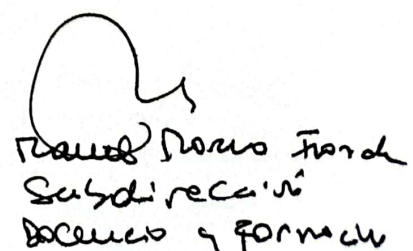 Manuel Moreno
Subdirección
Docencia y Formación